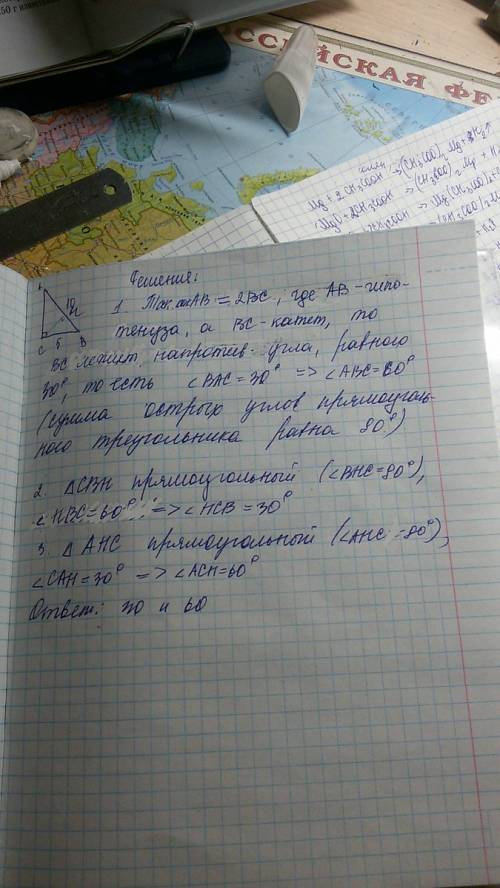 50 г
ССИЙСКАЯ ФЕ
Mg + 2CH₃COOH → (CH₃COO)₂Mg + H₂↑
Решения:
10
H
C 5 B
1. Так как AB = 2BC, где AB - гипо-
тенуза, а BC - катет, то
BC лежит напротив угла, равного
30°, то есть ∠BAC=30° => ∠ABC=60°
(сумма острых углов прямоуголь-
ного треугольника равна 90°)
2. △CBH прямоугольный (∠BHC=90°),
∠HBC=60° => ∠HCB=30°
3. △AHC прямоугольный (∠AHC=90°),
∠CAH=30° => ∠ACH=60°
Ответ: 30 и 60